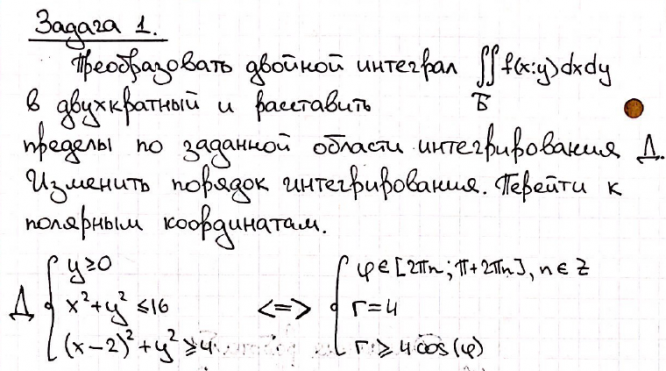 Задача 1.
Преобразовать двойной интеграл ∬ f(x;y)dxdy
Б
в двухкратный и расставить
пределы по заданной области интегрирования Д.
Изменить порядок интегрирования. Перейти к
полярным координатам.
Д { y≥0 <=> { φ∈[2πn; π+2πn], n∈Z
x²+y²≤16 r=4
(x-2)²+y²≥4 r≥4cos(φ)